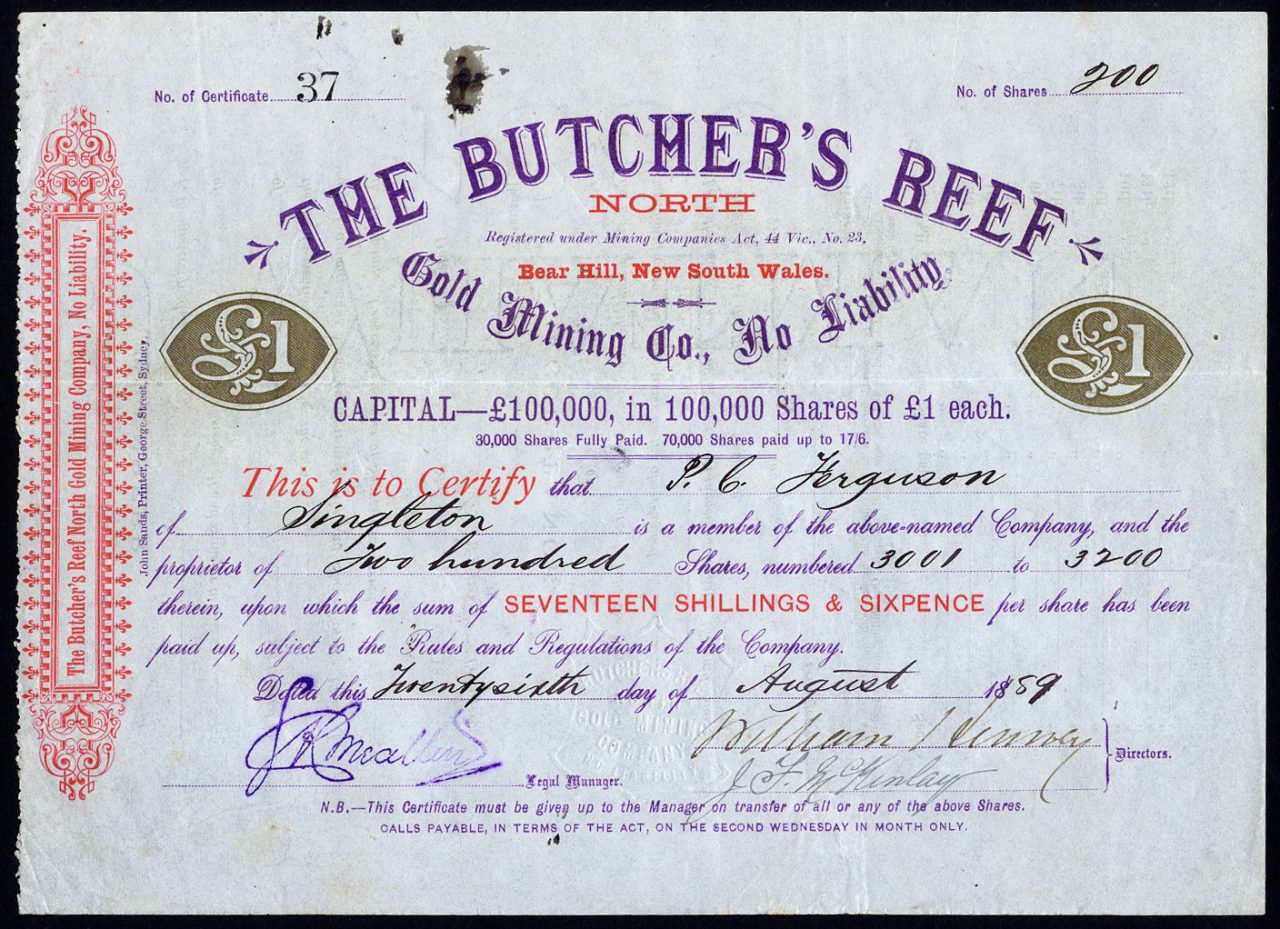 No. of Certificate 37
No. of Shares 200
THE BUTCHER'S REEF
NORTH
Registered under Mining Companies Act, 44 Vic., No. 23.
Bear Hill, New South Wales.
Gold Mining Co., No Liability.
£1
£1
CAPITAL—£100,000, in 100,000 Shares of £1 each.
30,000 Shares Fully Paid. 70,000 Shares paid up to 17/6.
This is to Certify that P. C. Ferguson
of Singleton is a member of the above-named Company, and the
proprietor of Two hundred Shares, numbered 3001 to 3200
therein, upon which the sum of SEVENTEEN SHILLINGS & SIXPENCE per share has been
paid up, subject to the Rules and Regulations of the Company.
Dated this Twentysixth day of August 1889
William
J. F. McKinlay
Directors.
Legal Manager.
N.B.—This Certificate must be given up to the Manager on transfer of all or any of the above Shares.
CALLS PAYABLE, IN TERMS OF THE ACT, ON THE SECOND WEDNESDAY IN MONTH ONLY.
The Butcher's Reef North Gold Mining Company, No Liability.
John Sands, Printer, George Street, Sydney.